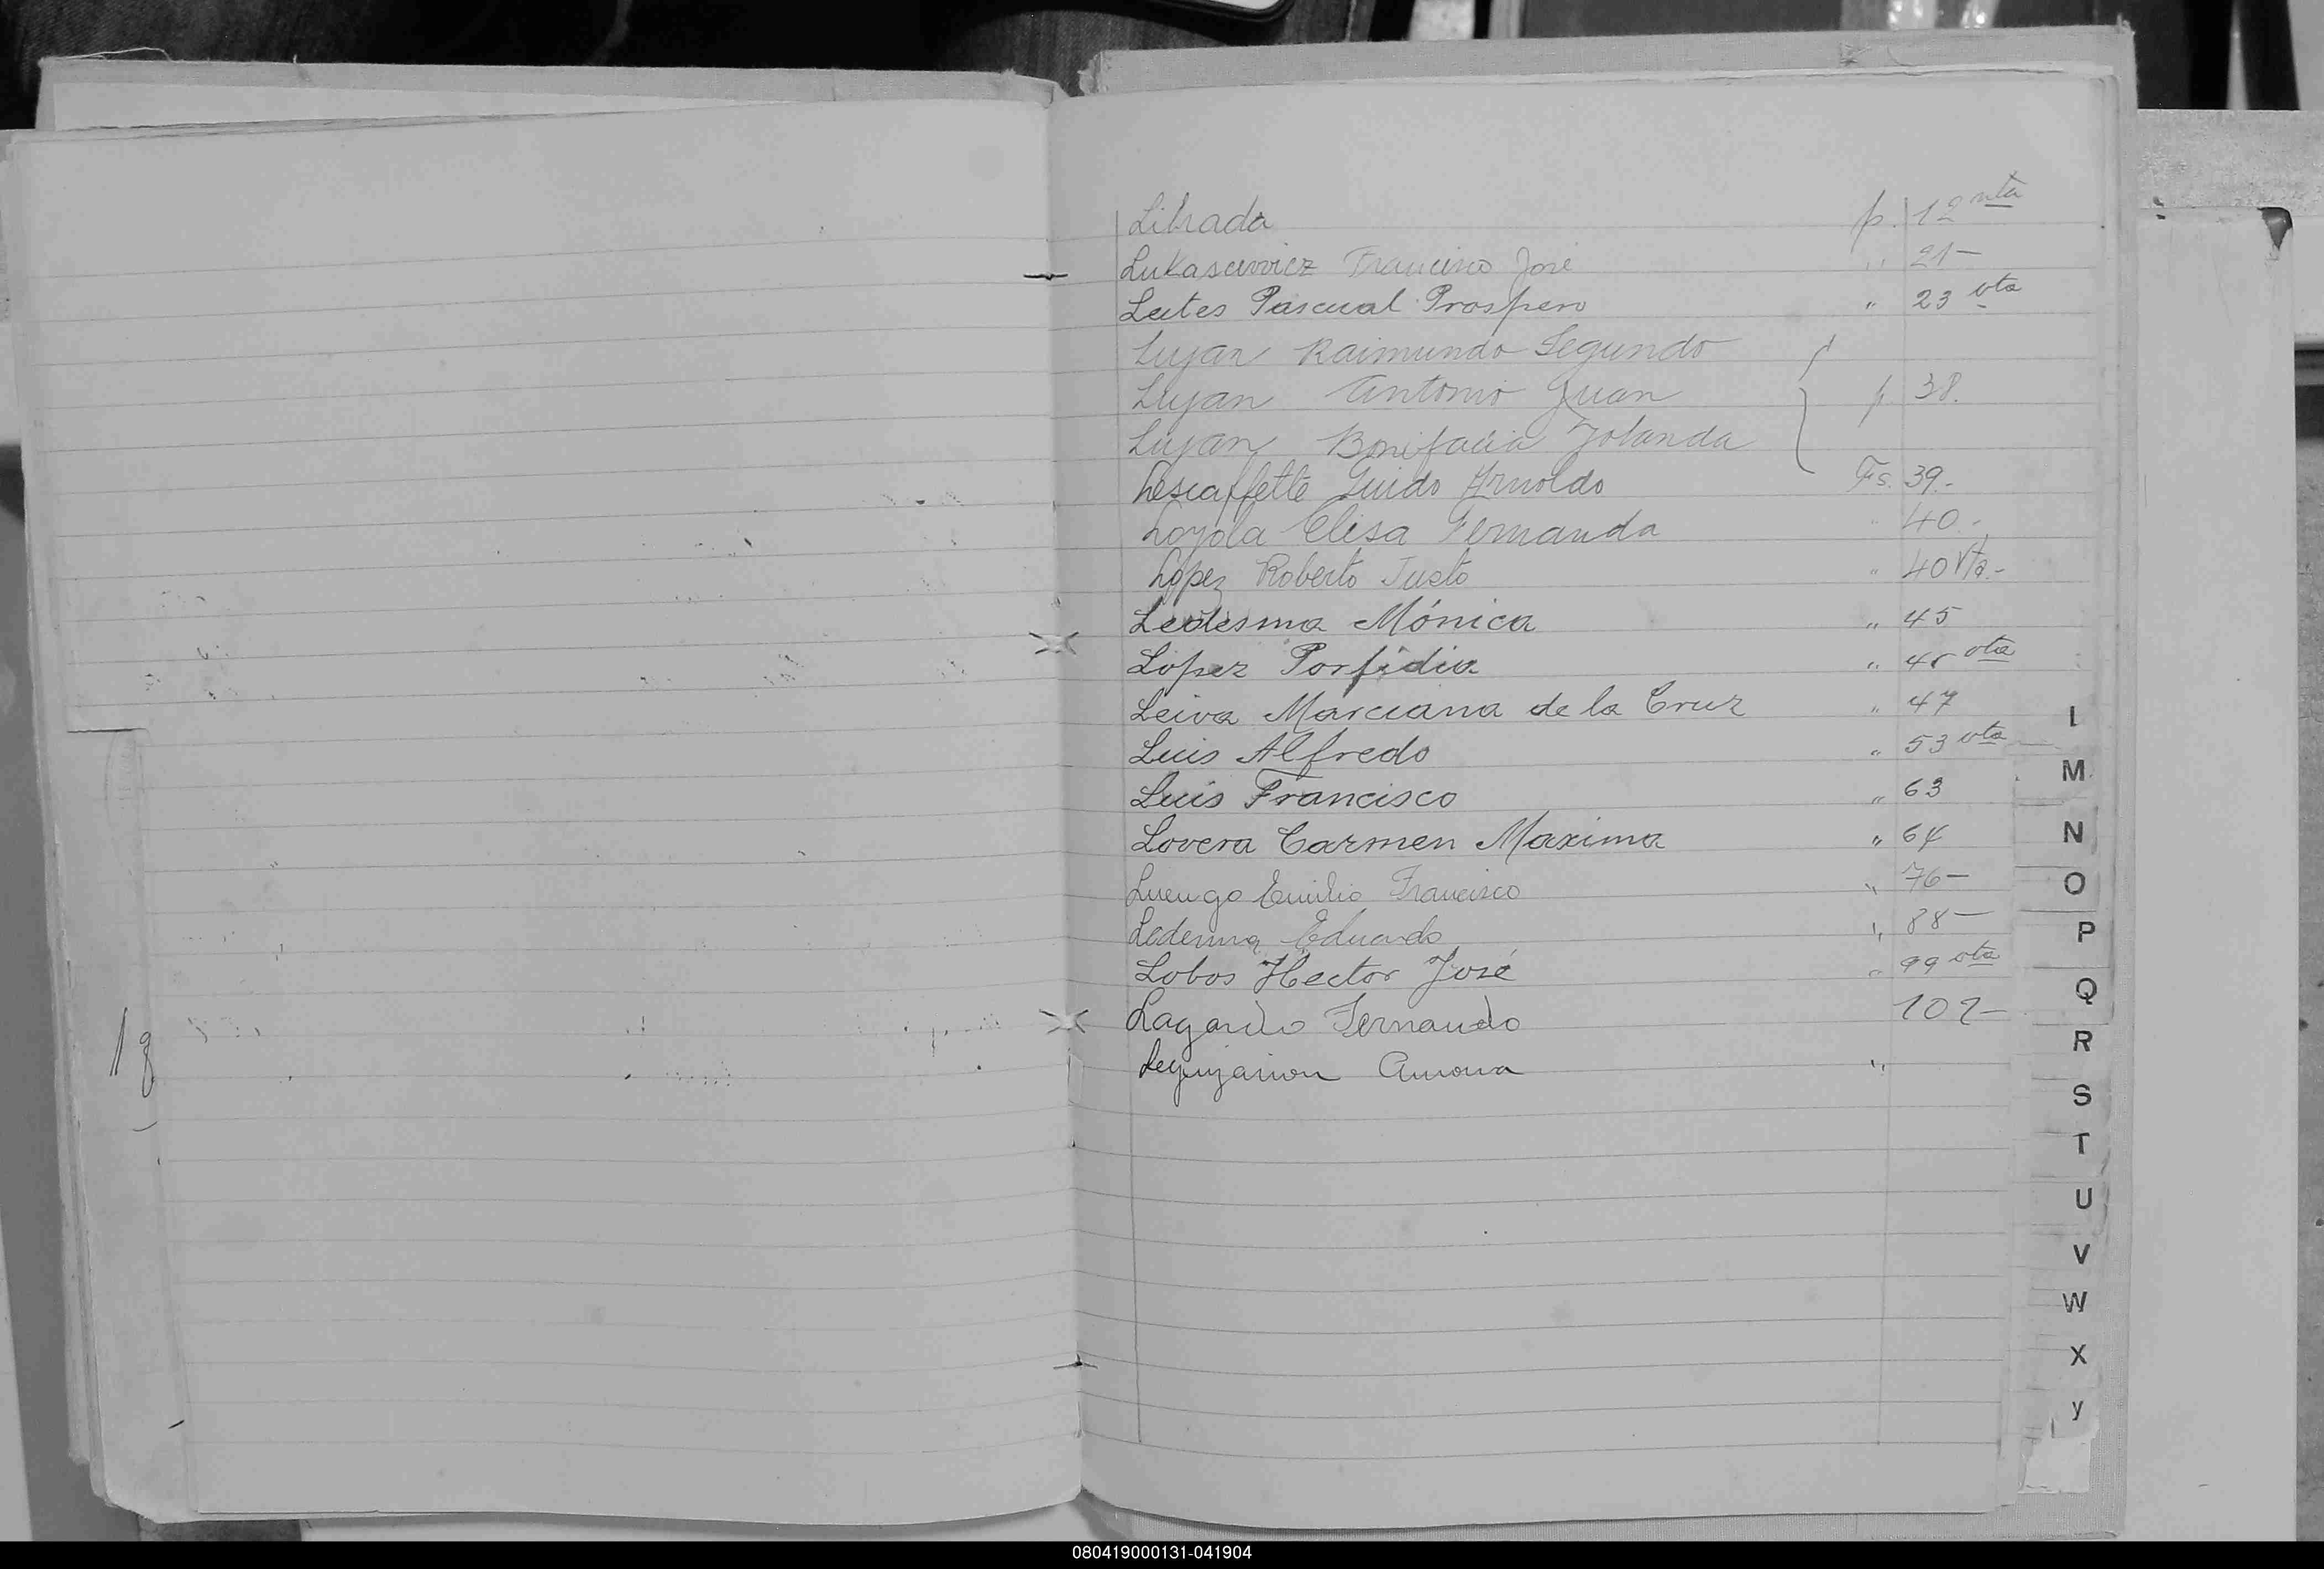 Librada p. 12 vta
Lukascewicz Francisco José " 21-
Leites Pascual Prospero " 23 vta
Lujan Raimundo Segundo
Lujan Antonio Juan p. 38.
Lujan Bonifacia Yolanda
Lescaffette Guido Arnoldo Fs. 39.-
Loyola Elisa Fernanda " 40.-
López Roberto Justo " 40 Vta.-
Ledesma Mónica " 45
Lopez Porfidia " 45 vta
Leiva Marciana de la Cruz " 47
Luis Alfredo " 53 vta
Luis Francisco " 63
Lovera Carmen Maxima " 64
Luengo Emilio Francisco " 76-
Ledesma Eduardo " 88-
Lobos Hector José " 99 vta
Fernando 102-
"
L
M
N
O
P
Q
R
S
T
U
V
W
X
y
080419000131-041904